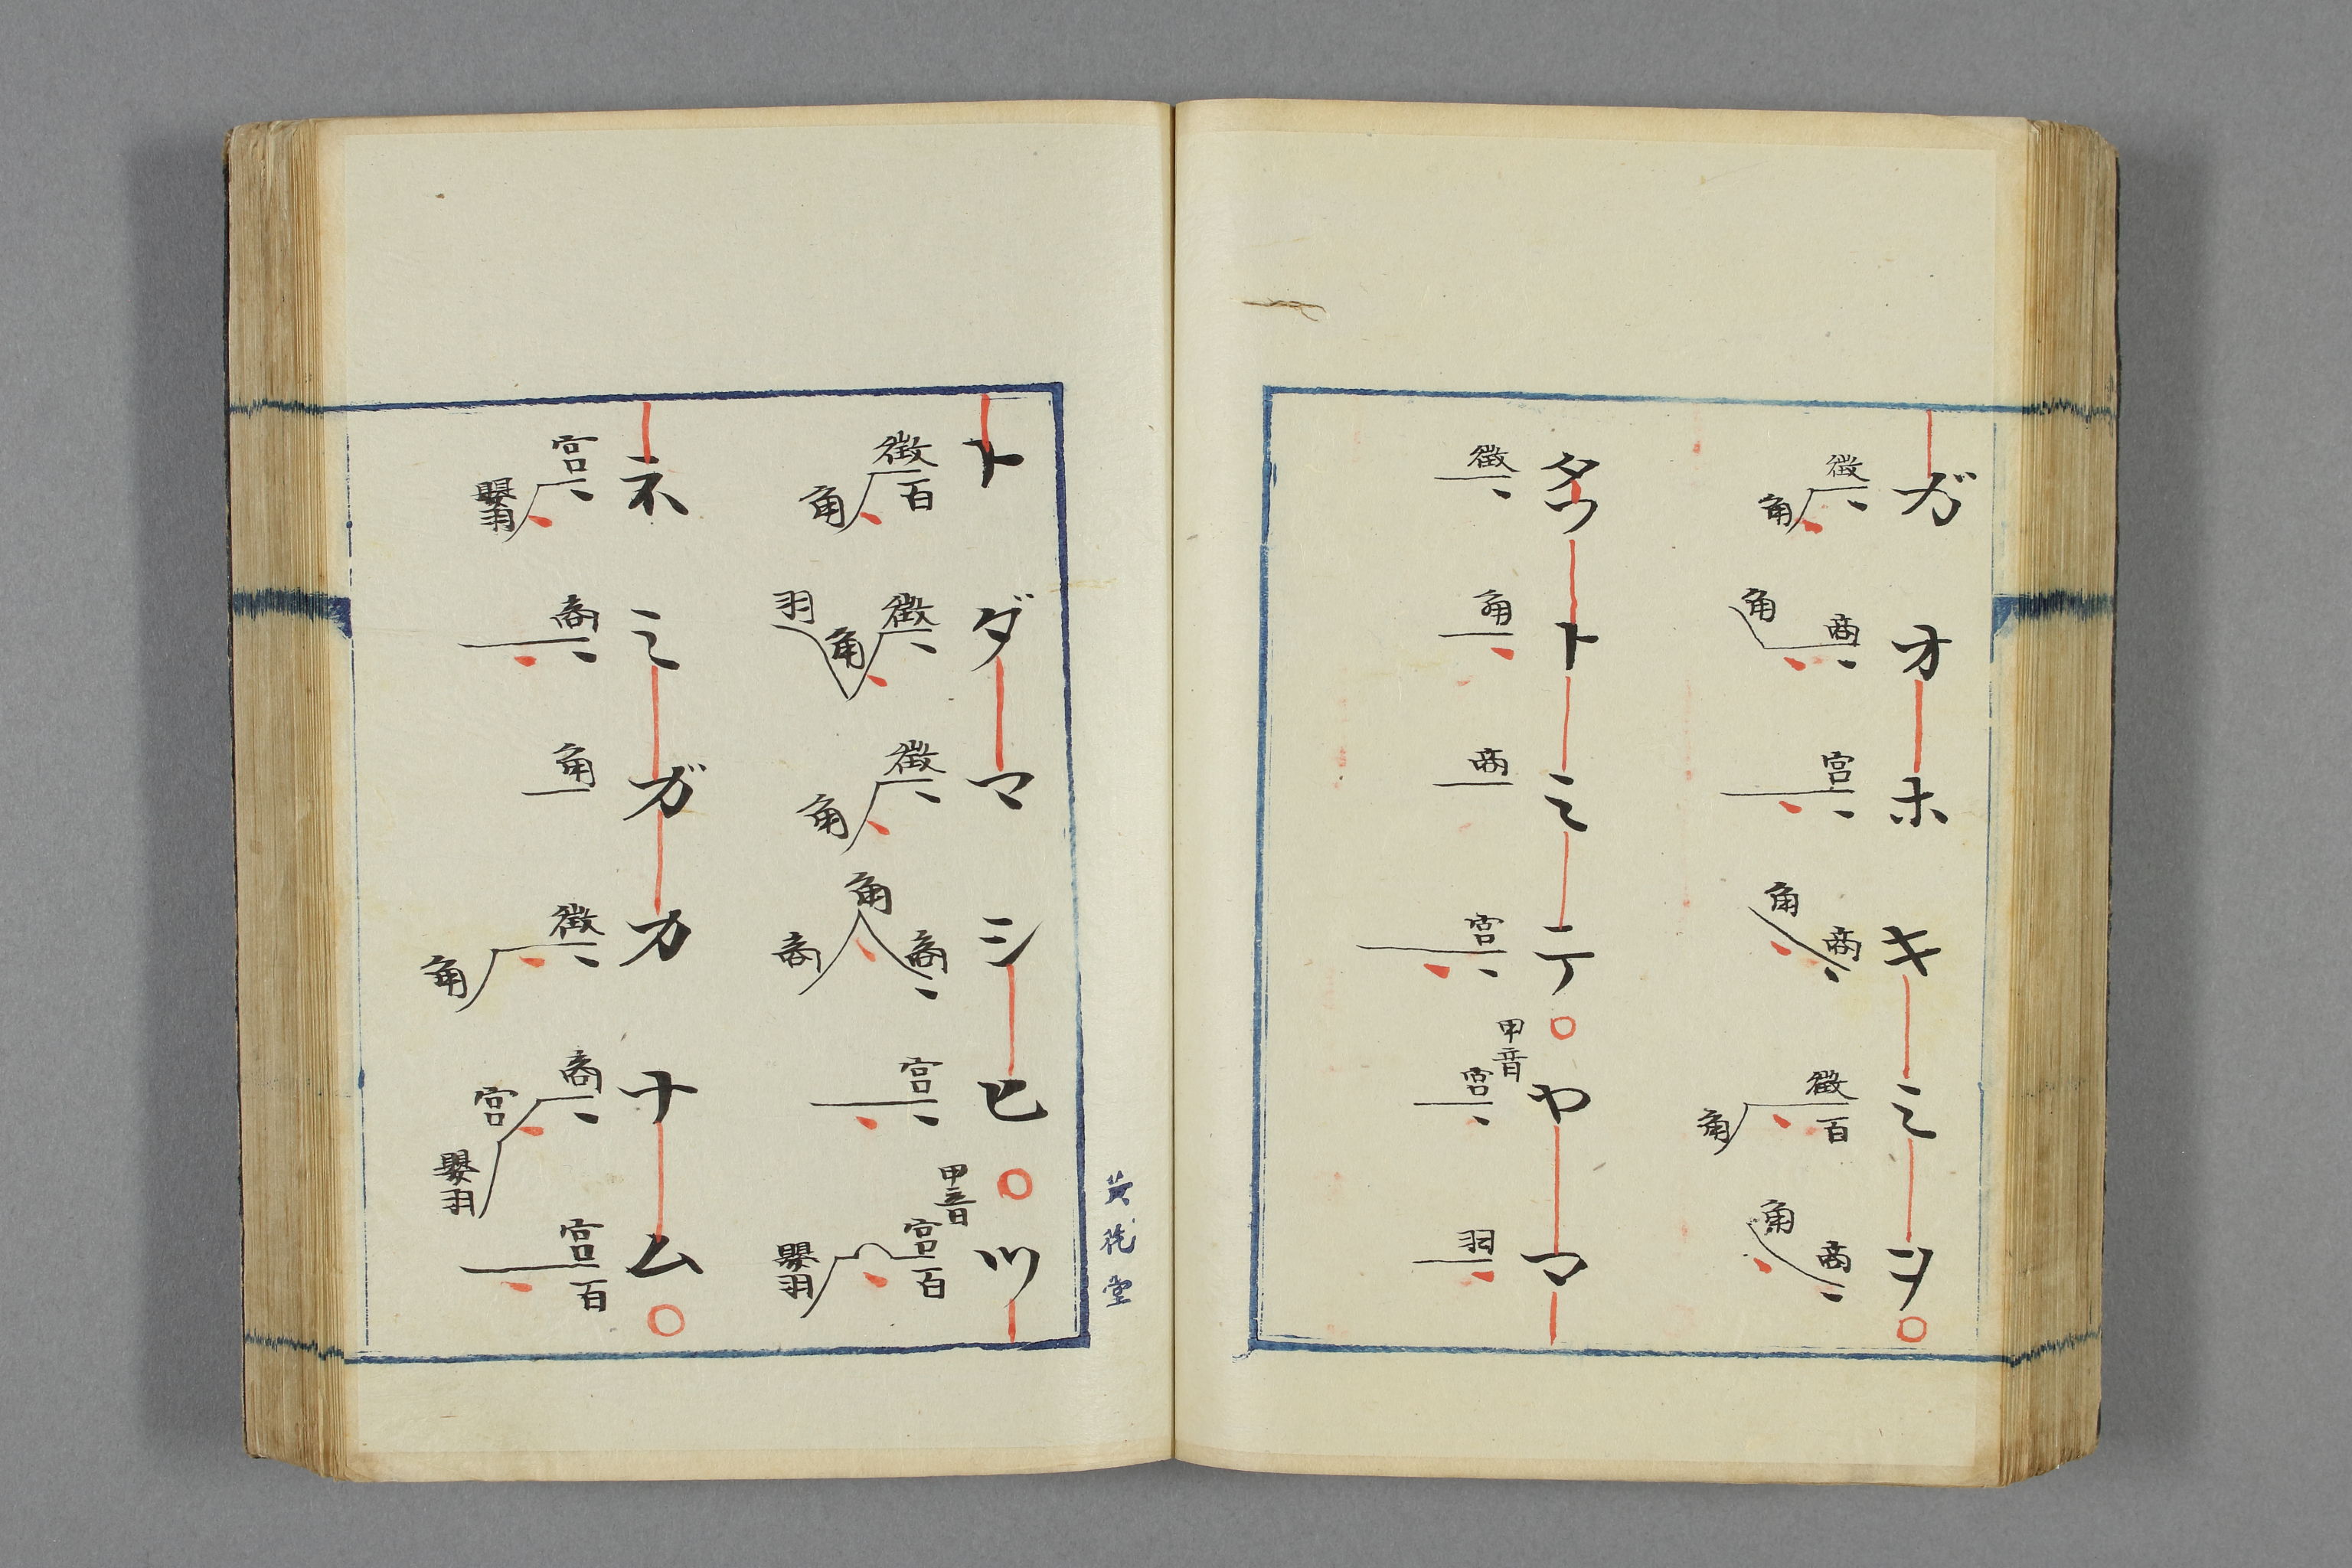 ガオホキミヲ
徴角 商角 宮 商角 徴百角 商角
タフトミテ ヤマ
徴 角 商 宮 甲音 宮 羽
トダマシヒ ツ
徴百角 徴角羽 徴角 商角商 宮 甲音 宮百嬰羽
ネミガカナム
宮嬰羽 商 角 徴角 商宮嬰羽 宮百